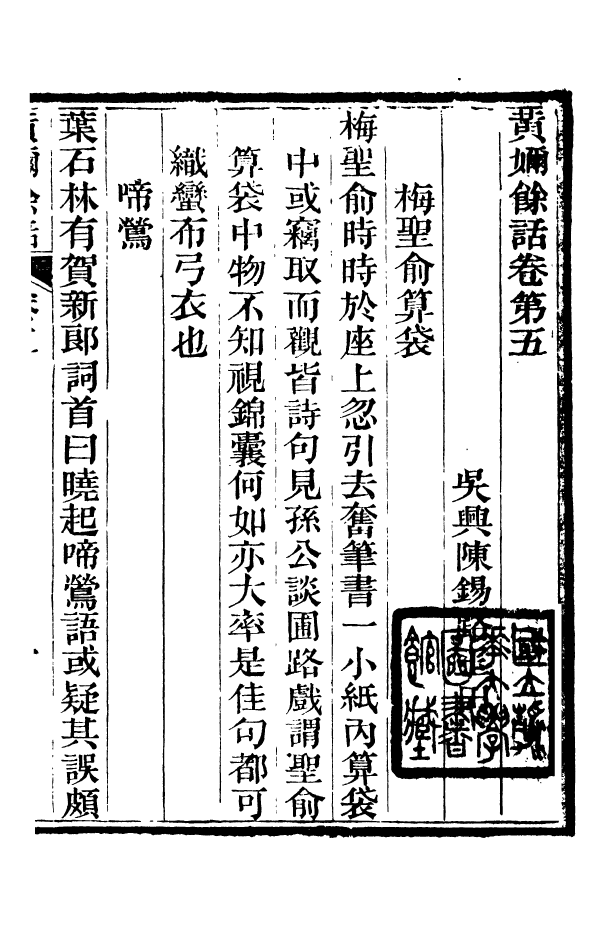 黃嬭餘話卷第五
吳興陳錫
梅聖俞算袋
梅聖俞時時於座上忽引去奮筆書一小紙內算袋
中或竊取而觀皆詩句見孫公談圃路戲謂聖俞
算袋中物不知視錦囊何如亦大率是佳句都可
織蠻布弓衣也
啼鶯
葉石林有賀新郎詞首曰曉起啼鶯語或疑其誤頗